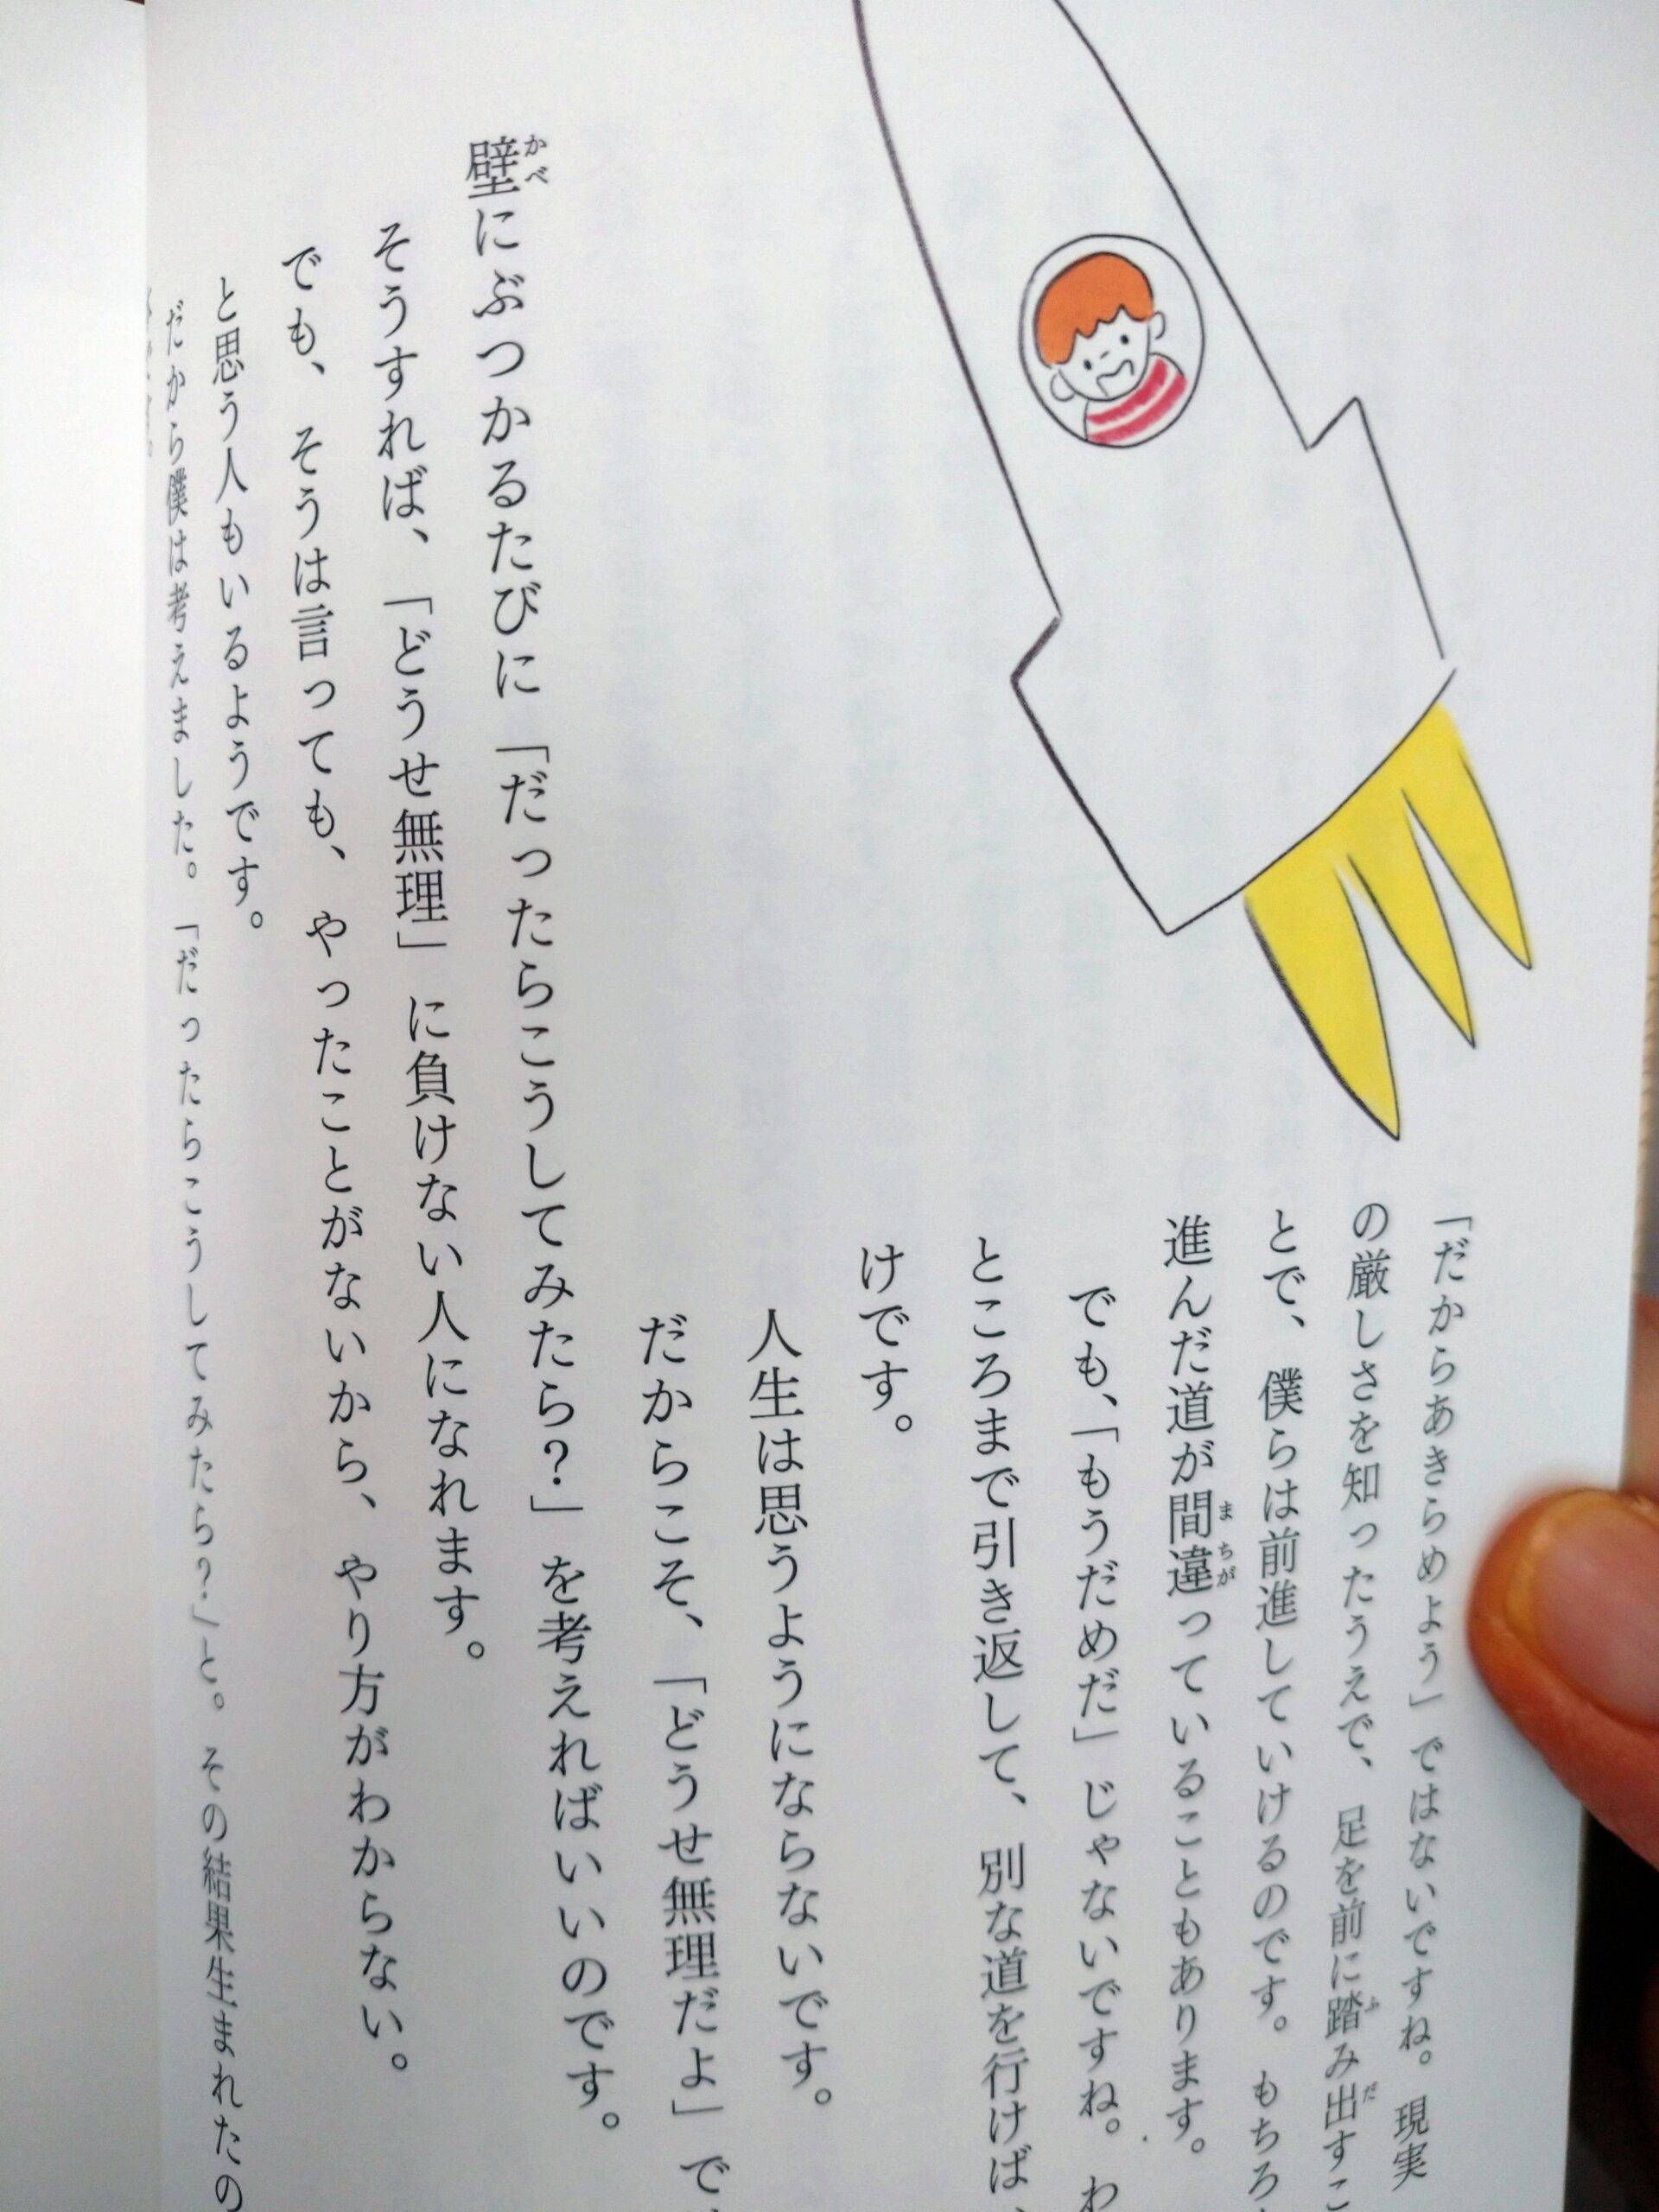 「だからあきらめよう」ではないですね。現実
の厳しさを知ったうえで、足を前に踏み出すこ
とで、僕らは前進していけるのです。もちろ
進んだ道が間違っていることもあります。
でも、「もうだめだ」じゃないですね。わ
ところまで引き返して、別な道を行けば、
けです。
人生は思うようにならないです。
だからこそ、「どうせ無理だよ」で
壁にぶつかるたびに「だったらこうしてみたら？」を考えればいいのです。
そうすれば、「どうせ無理」に負けない人になれます。
でも、そうは言っても、やったことがないから、やり方がわからない。
と思う人もいるようです。
だから僕は考えました。「だったらこうしてみたら？」と。その結果生まれたの